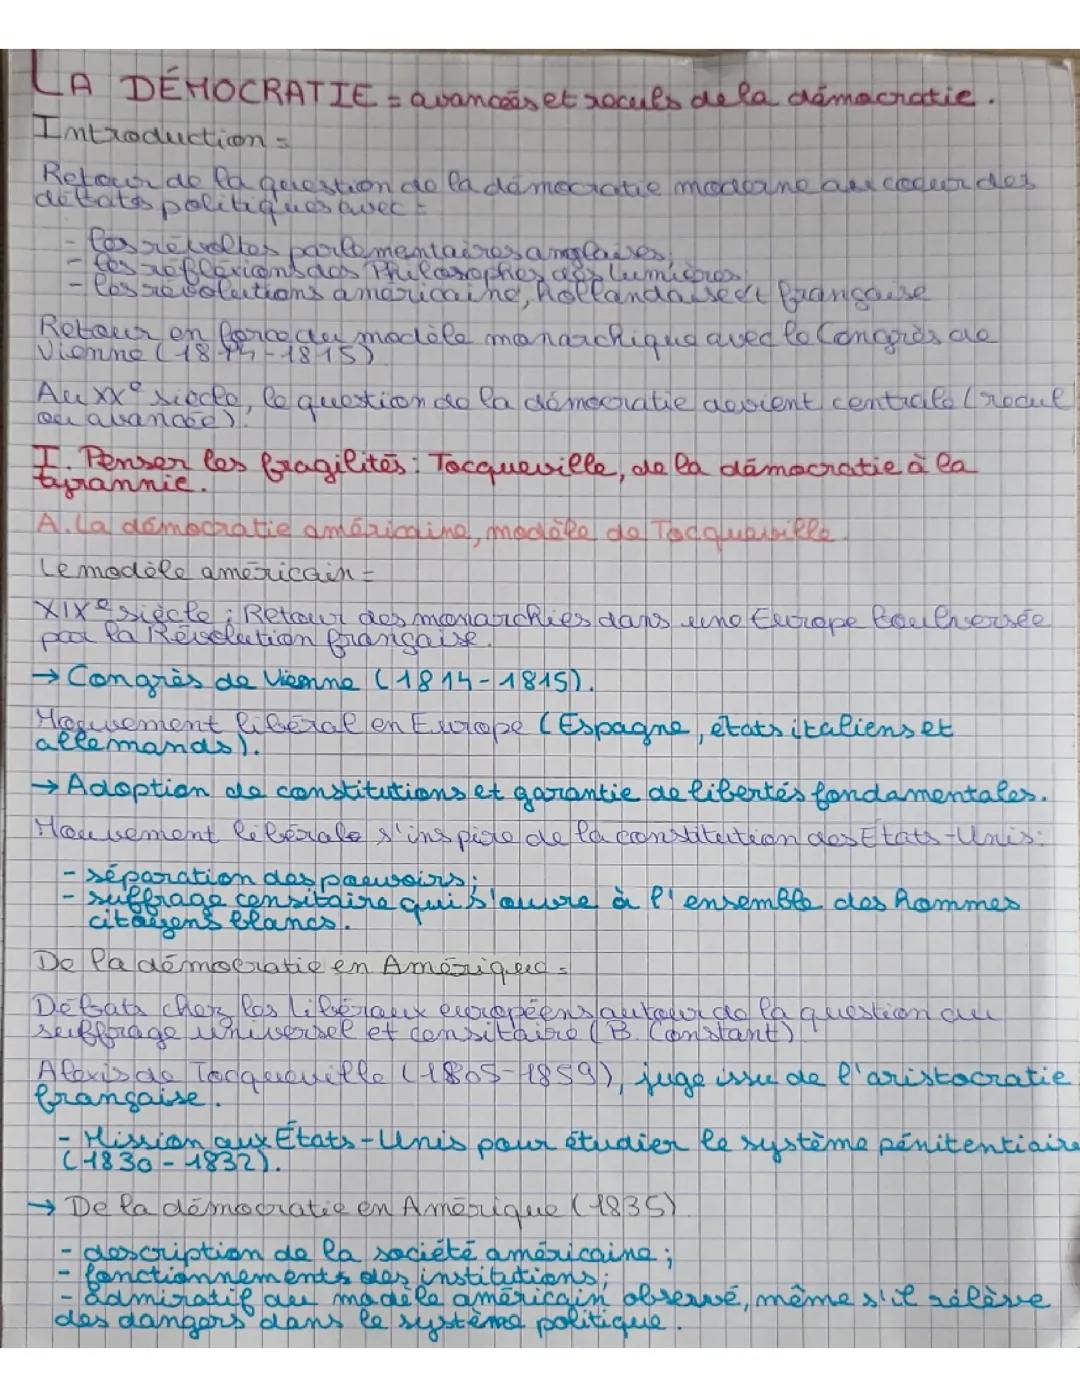 LA DÉMOCRATIE = avancées et reculs de la démocratie.
Introduction =
Retour de la question de la démocratie moderne au coeur des
débats politiques avec =
- les révoltes parlementaires anglaises,
- les réflexions des Philosophes des lumières
- les révolutions américaine, hollandaise et française
Retour en force du modèle monarchique avec le Congrès de
Vienne (1814-1815)
Au XXe siècle, la question de la démocratie devient centrale (recul
ou avancée).
I. Penser les fragilités : Tocqueville, de la démocratie à la
tyrannie.
A. La démocratie américaine, modèle de Tocqueville.
Le modèle américain =
XIXe siècle : Retour des monarchies dans une Europe bouleversée
par la Révolution française.
→ Congrès de Vienne (1814-1815).
Mouvement libéral en Europe (Espagne, états italiens et
allemands).
→ Adoption de constitutions et garantie de libertés fondamentales.
Mouvement libérale s'inspire de la constitution des Etats-Unis :
- séparation des pouvoirs ;
- suffrage censitaire qui s'ouvre à l'ensemble des hommes
citoyens blancs.
De la démocratie en Amérique =
Débats chez les libéraux européens autour de la question du
suffrage universel et censitaire (B. Constant)
Alexis de Tocqueville (1805-1859), juge issu de l'aristocratie
française.
- Mission aux États-Unis pour étudier le système pénitentiaire
(1830-1832).
→ De la démocratie en Amérique (1835)
- description de la société américaine ;
- fonctionnements des institutions ;
- admiratif du modèle américain observé, même s'il relève
des dangers dans le système politique.